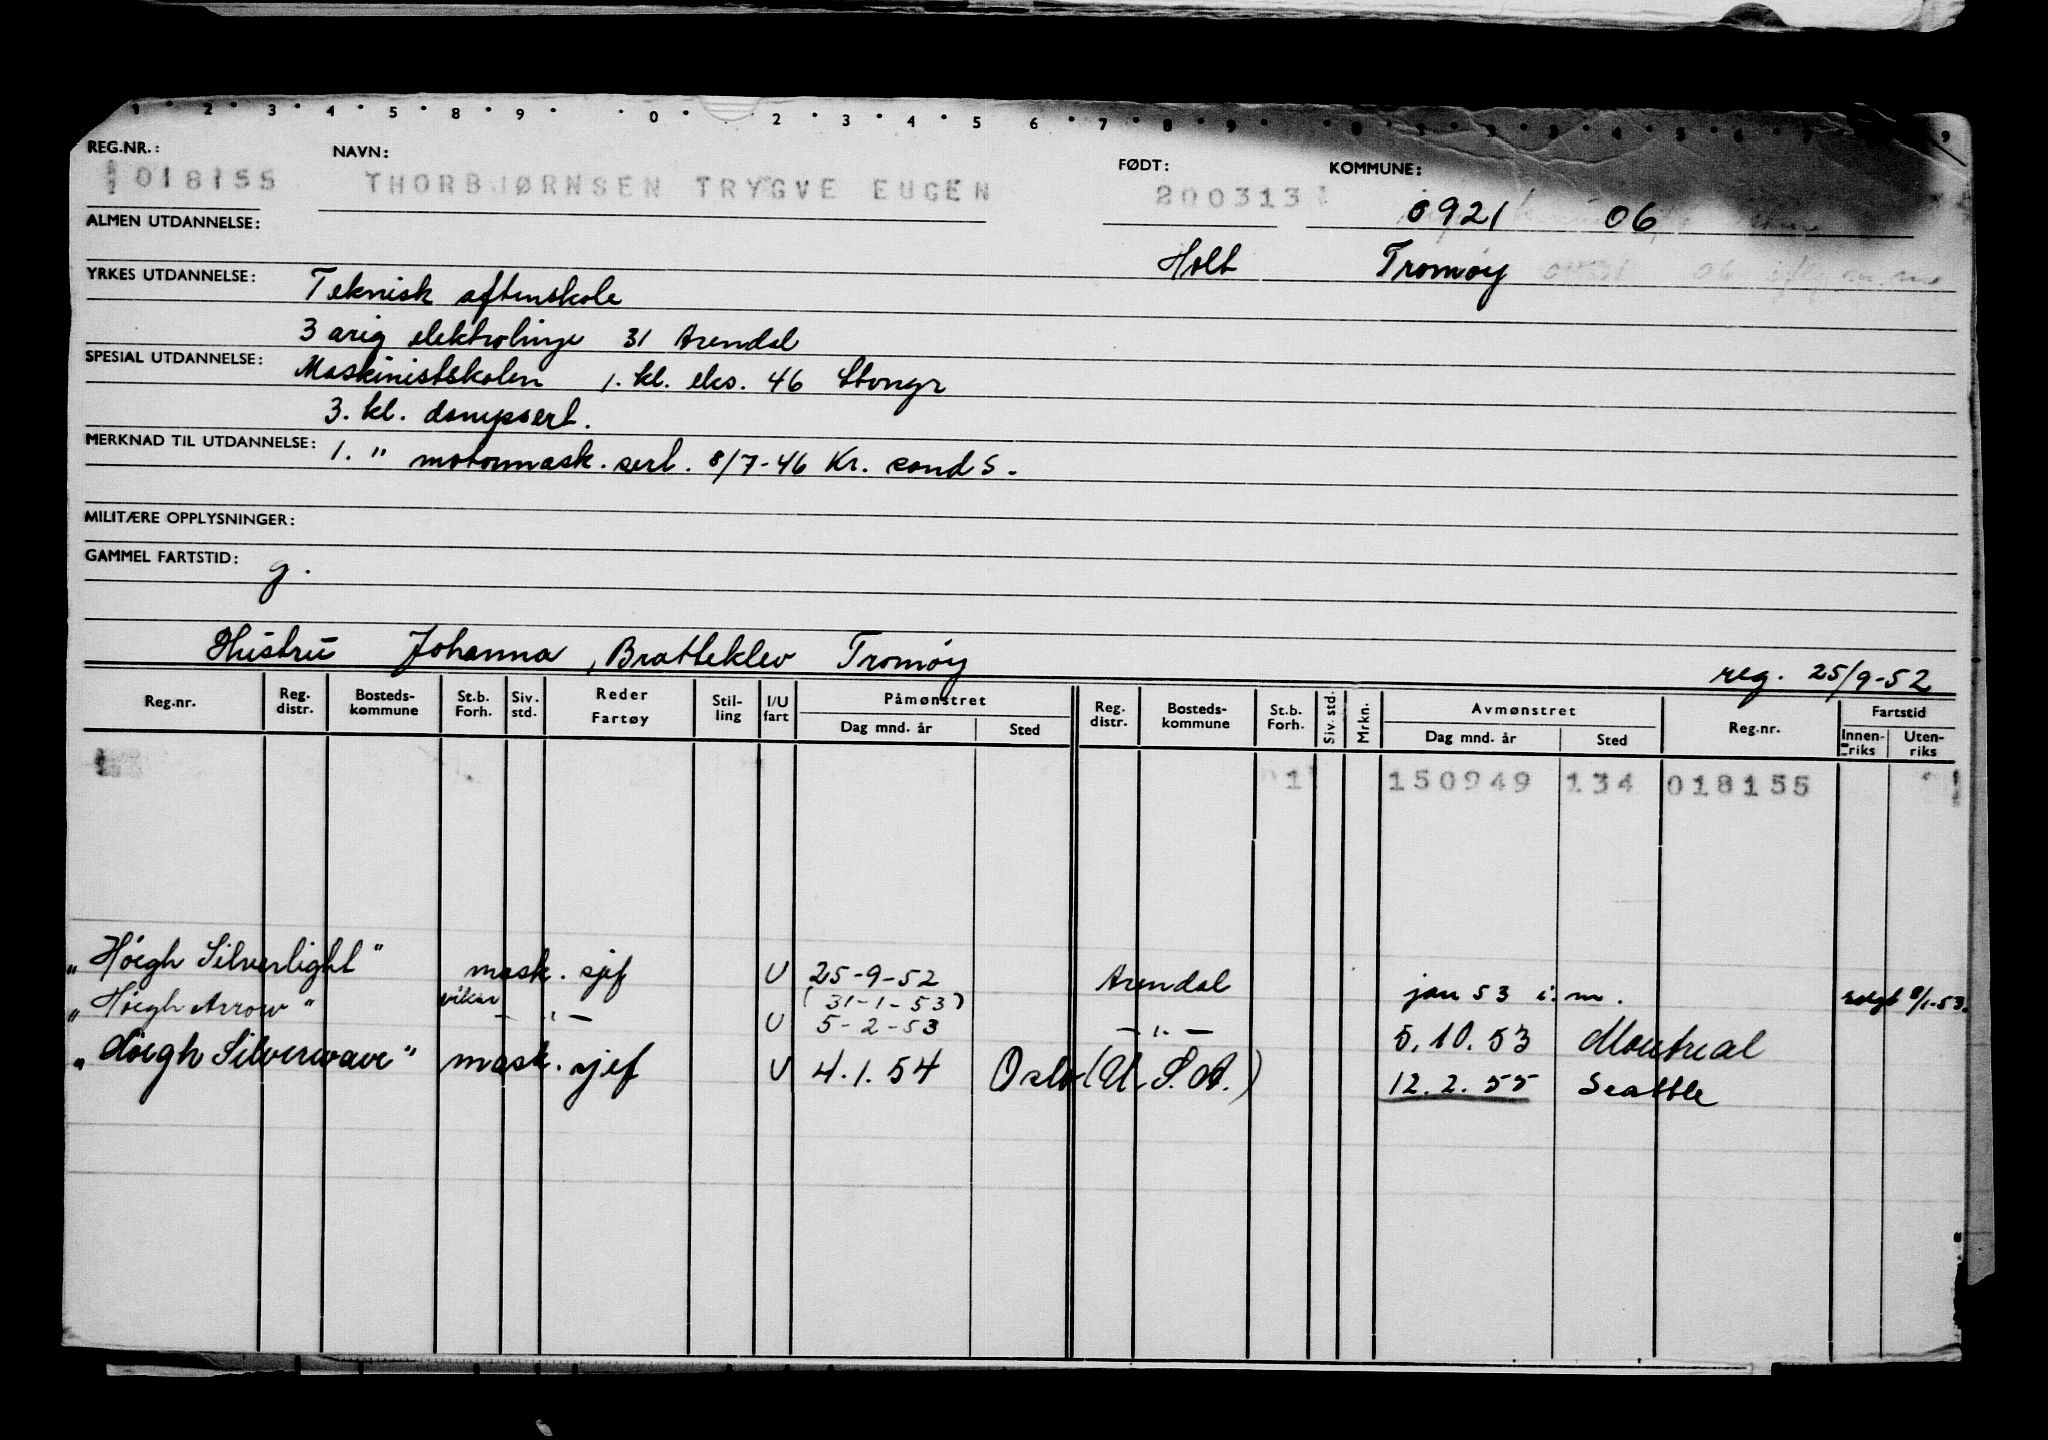 1 2 3 4 5 8 9 0 2 3 4 5 6 7 8 9 0 1 2 3 4 5 6 7 8 9
REG.NR.: NAVN: FØDT: KOMMUNE:
018155 THORBJØRNSEN TRYGVE EUGEN 200313 0921 06
ALMEN UTDANNELSE: Holt Tromøy
YRKES UTDANNELSE: Teknisk aftenskole
3 årig elektrolinje 31 Arendal
SPESIAL UTDANNELSE: Maskinistskolen 1. kl. eks. 46
3. kl. dampsert.
MERKNAD TIL UTDANNELSE: 1. " motormask. sert. 8/7-46 Kr. sand S.
MILITÆRE OPPLYSNINGER:
GAMMEL FARTSTID: g.
Hustru Johanna, Bratteklev Tromøy reg. 25/9-52
Reg.nr. Reg. distr. Bosteds-kommune St.b. Forh. Siv. std. Reder Fartøy Stil-ling I/U fart Påmønstret Dag mnd. år Sted Reg. distr. Bosteds-kommune St.b. Forh. Siv. std. Mrkn. Avmønstret Dag mnd. år Sted Reg.nr. Fartstid Innen-riks Uten-riks
01 150949 134 018155
"Höegh Silverlight" mask. sjef U 25-9-52 Arendal jan 53 i. m. solgt 8/1-53.
(31-1-53)
"Höegh Arrow" vikar — " — U 5-2-53 — " — 5.10.53 Montreal
"Höegh Silverwave" mask. sjef U 4.1.54 Oslo (U.S.A.) 12.2.55 Seattle